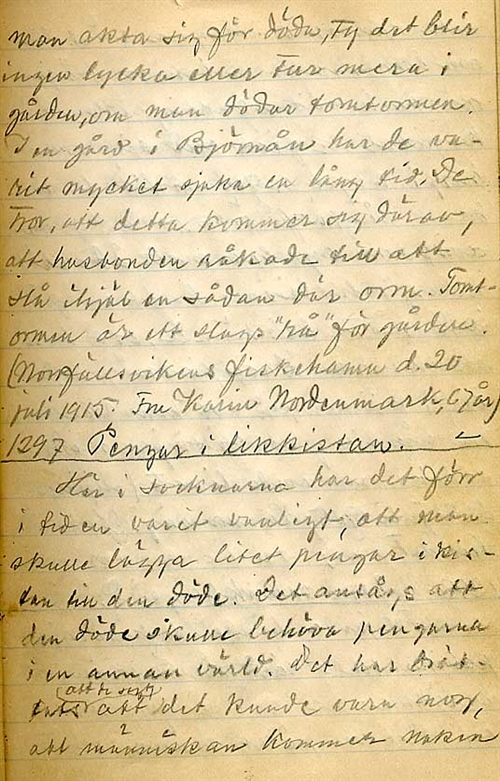 man akta sig för döda, ty det blir
ingen lycka eller tur mera i
gården, om man dödar tomtormen.
I en gård i Björnån har de va-
rit mycket sjuka en lång tid. De
tror, att detta kommer sig därav,
att husbonden råkade till att
slå ihjäl en sådan där orm. Tomt-
ormen är ett slags "rå" för gården.
(Norrfällsvikens fiskehamn d. 20
juli 1915. Fru Karin Nordenmark, 67 år)
1297 Pengar i likkistan. –
Här i socknarna har det förr
i tiden varit vanligt, att man
skulle lägga litet pengar i kis-
tan till den döde. Det ansågs att
den döde skulle behöva pengarna
i en annan värld. Det har
(att de sagt)
att det kunde vara nog,
att människan kommer naken